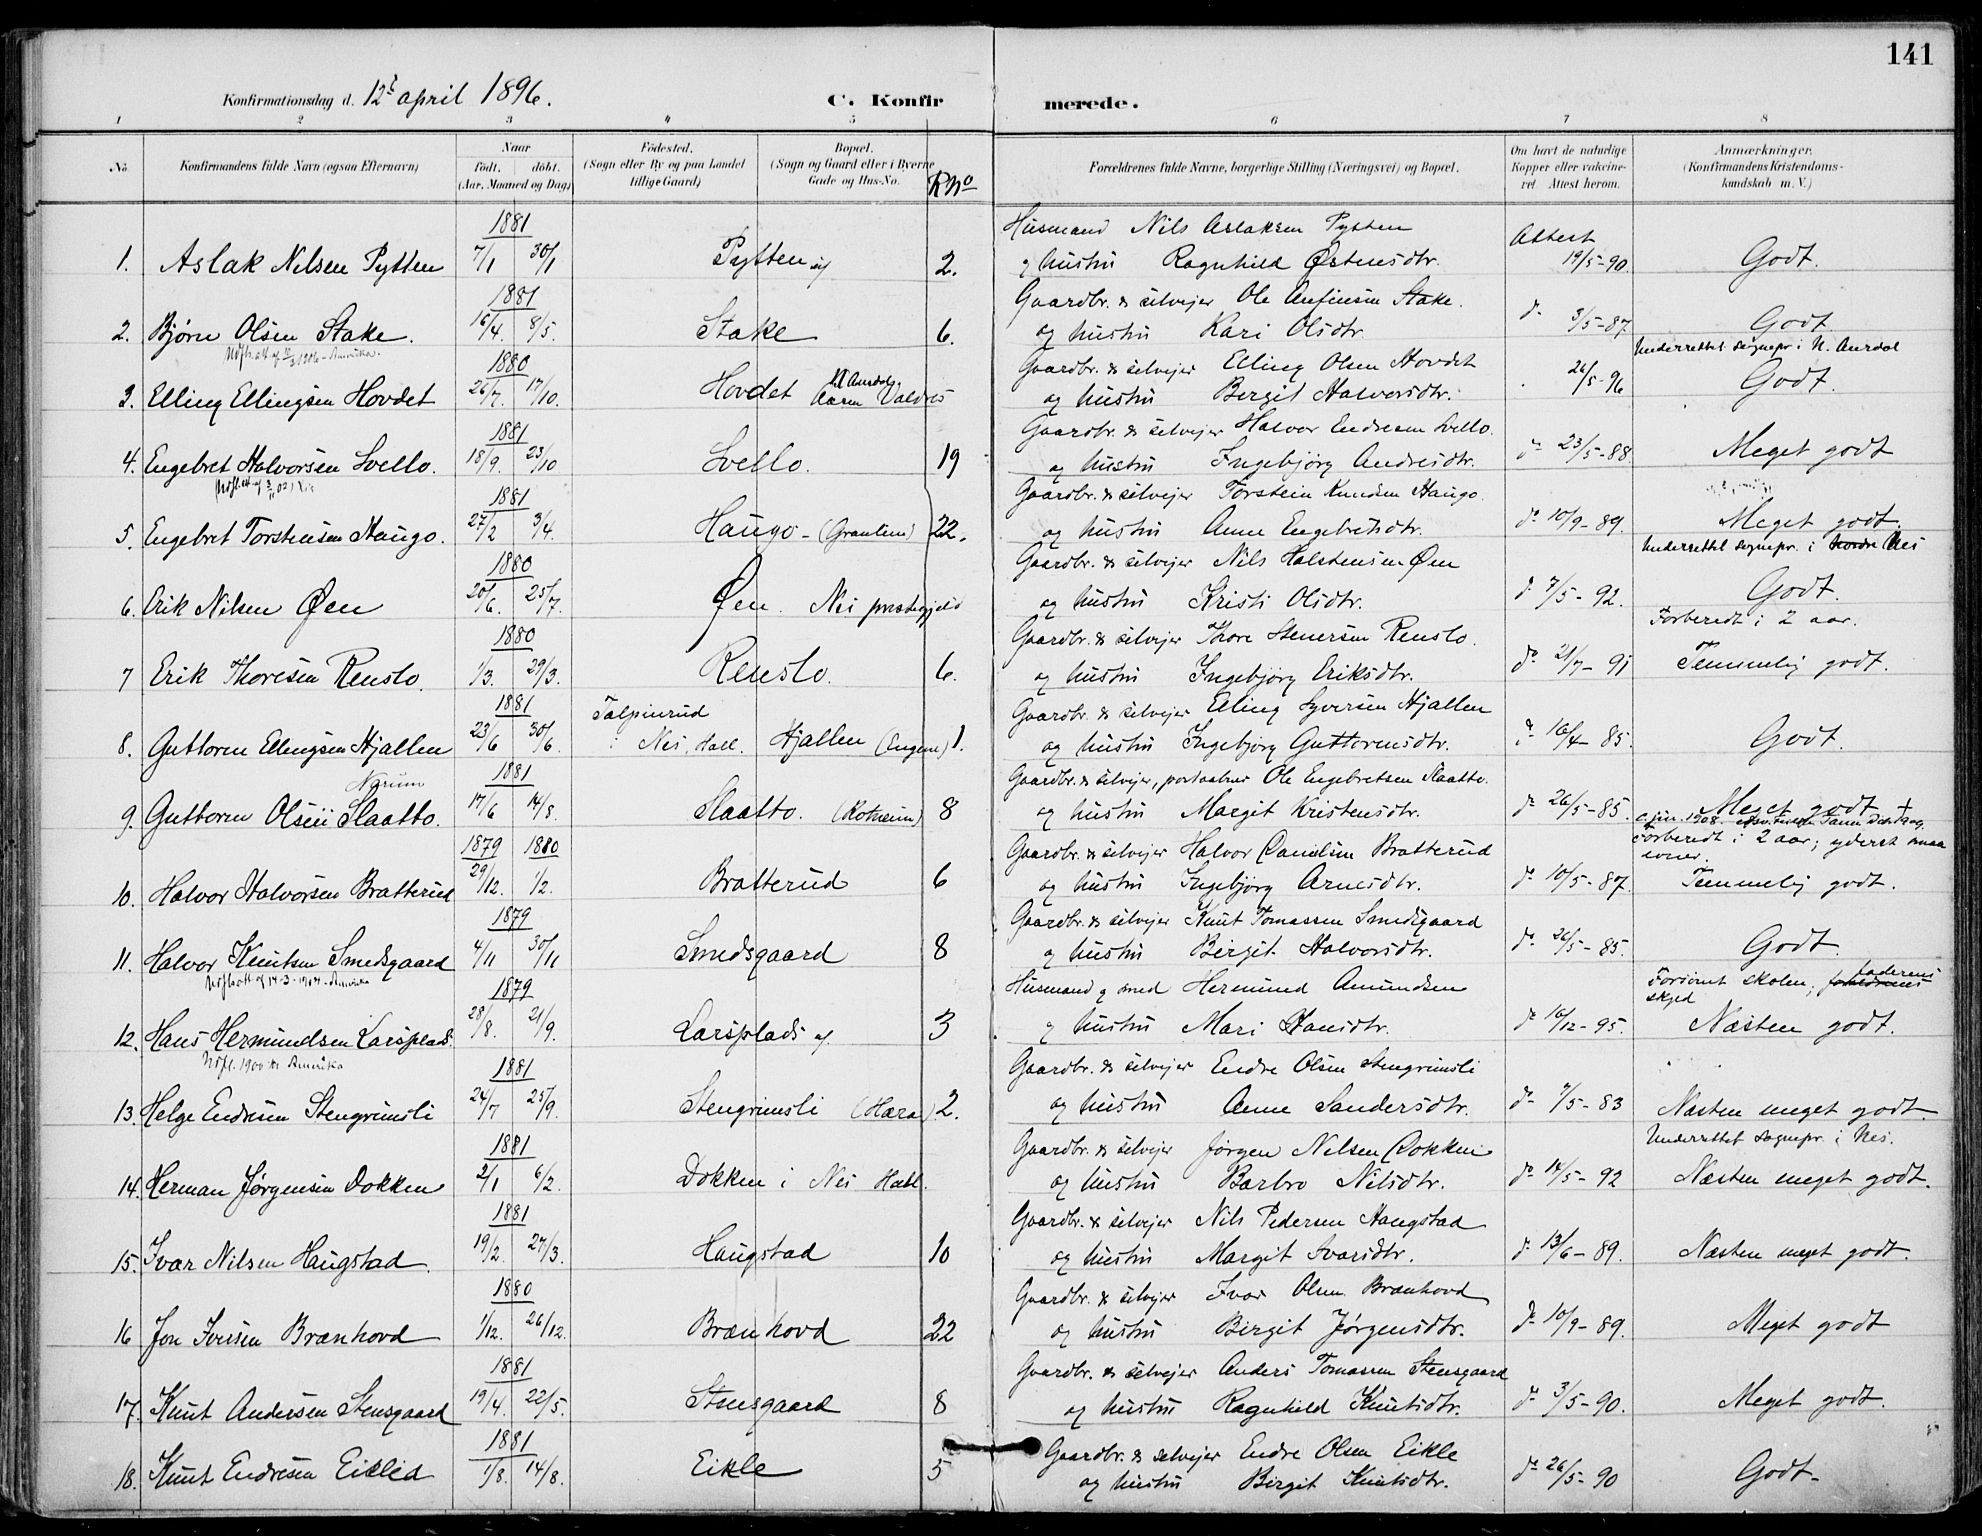 141
Konfirmationsdag d. 12te april 1896. C. Konfirmerede.
1 2 3 4 5 6 7 8
No Konfirmandens fulde Navn (ogsaa Efternavn) Naar født. døbt. (Aar, Maaned og Dag) Födested. (Sogn eller By og paa Landet tillige Gaard) Bopæl. (Sogn og Gaard eller i Byerne Gade og Hus-No. R No Forældrenes fulde Navne, borgerlige Stilling (Næringsvei) og Bopæl. Om havt de naturlige Kopper eller vakcineret. Attest herom. Anmærkninger. (Konfirmandens Kristendomskundskab m. V.)
1881 Husmand Nils Aslaksen Pytten Attest
1. Aslak Nilsen Pytten 7/1 30/1 Pytten 2. og hustru Ragnhild Østensdtr. 19/5-90 Godt.
1881 Gaardbr. & selvejer Ole Anfinsen Stake.
2. Bjørn Olsen Stake. 16/4. 8/5. Stake 6. og hustru Kari Olsdtr. do 3/5-87 Godt
Underrettet sognepr. i N. Aurdal
1880 Gaardbr. & selvejer Elling Olsen Hovdet
3. Elling Ellingsen Hovdet 26/7. 17/10. Hovdet N Aurdal Valdres og hustru Birgit Halvorsdtr. 26/5-96 Godt.
1881 Gaardbr. & selvejer Halvor Endresen Svello.
4. Engebret Halvorsen Svello. 18/9. 23/10 Svello. 19 og hustru Ingebjørg Andresdtr. do 23/5-88. Meget godt
1881 Gaardbr. & selvejer Torstein Knudsen Haugo.
5. Engebret Torstensen Haugo. 27/2 3/4. Haugo - (Grantun) 22. og hustru Anne Engebretsdtr. do 10/9-89. Meget godt.
Underrettet sognepr. i Nordre Nes
1880 Gaardbr. & selvejer Nils Holstensen Øen
6. Erik Nilsen Øen 20/6. 25/7. Øen. Nes prestegjeld og hustru Kristi Olsdtr. do 7/5-92. Godt.
Forberedt i 2 aar.
1880 Gaardbr. & selvejer Thore Stenersen Renslo.
7 Erik Thoresen Renslo. 1/3. 29/3. Renslo. 6. og hustru Ingebjørg Eriksdtr. do 21/7-91 Temmelig godt.
1881 Gaardbr. & selvejer Elling Syversen Hjallen
8. Guttorm Ellingsen Hjallen 23/6 30/6. Talpinrud i Nes, Hall. Hjallen 1. og hustru Ingebjørg Guttormsdtr. do 16/4-85. Godt.
Narum
1881 Gaardbr. & selvejer, postaabner Ole Engebretsen Slaatto.
9. Guttorm Olsen Slaatto. 17/6 14/8. Slaatto. (Rotneim) 8 og hustru Margit Kristensdtr. do 26/5-85. Meget godt +
Forberedt i 2 aar; yderst smaa evner.
1879 1880 Gaardbr. & selvejer Halvor Danielsen Bratterud
10. Halvor Halvorsen Bratterud 29/12. 1/2. Bratterud 6 og hustru Ingebjørg Arnesdtr. do 10/5-87. Temmelig godt.
1879 Gaardbr. & selvejer Knut Tomassen Smedsgaard
11. Halvor Knutsen Smedsgaard 4/11 30/11 Smedsgaard 8 og hustru Birgit Halvorsdtr. do 26/5-85. Godt
Utfl.att. af 14-3-1904 - Amerika
Forsømt skolen; forældrenes faderens skyld
1879 Husmand og smed Hermund Amundsen
12. Hans Hermundsen Larsplads. 28/8. 21/9. Larsplads 3 og hustru Mari Hansdtr. do 16/12-95. Næsten godt.
Utfl. 1900 til Amerika
1881 Gaardbr. & selvejer Endre Olsen Stengrimsli
13. Helge Endresen Stengrimsli 24/7 25/9. Stengrimsli (Hæra) 2. og hustru Anne Sandersdtr. do 7/5-83 Næsten meget godt.
Underrettet sognepr. i Nes.
1881 Gaardbr. & selvejer Jørgen Nilsen Dokken
14. Herman Jørgensen Dokken 2/1 6/2. Dokken i Nes Hall. og hustru Barbro Nilsdtr. do 14/5-92 Næsten meget godt.
1881 Gaardbr. & selvejer Nils Pedersen Haugstad
15. Ivar Nilsen Haugstad. 19/2. 27/3. Haugstad 10 og hustru Margit Ivarsdtr. do 13/6-89. Næsten meget godt.
1880 Gaardbr. & selvejer Ivar Olsen Brænhovd
16 Jon Iversen Brænhovd 1/12. 26/12. Brænhovd 22 og hustru Birgit Jørgensdtr. do 10/9-89. Meget godt
1881 Gaardbr. & selvejer Anders Tomassen Stensgaard
17. Knut Andersen Stensgaard 19/4. 22/5. Stensgaard 8 og hustru Ragnhild Knutsdtr. do 3/5-90. Meget godt.
1881 Gaardbr. & selvejer Endre Olsen Eikle
18. Knut Endresen Eiklid 1/8. 14/8. Eikle 5 og hustru Birgit Knutsdtr. do 26/5-90 Godt-